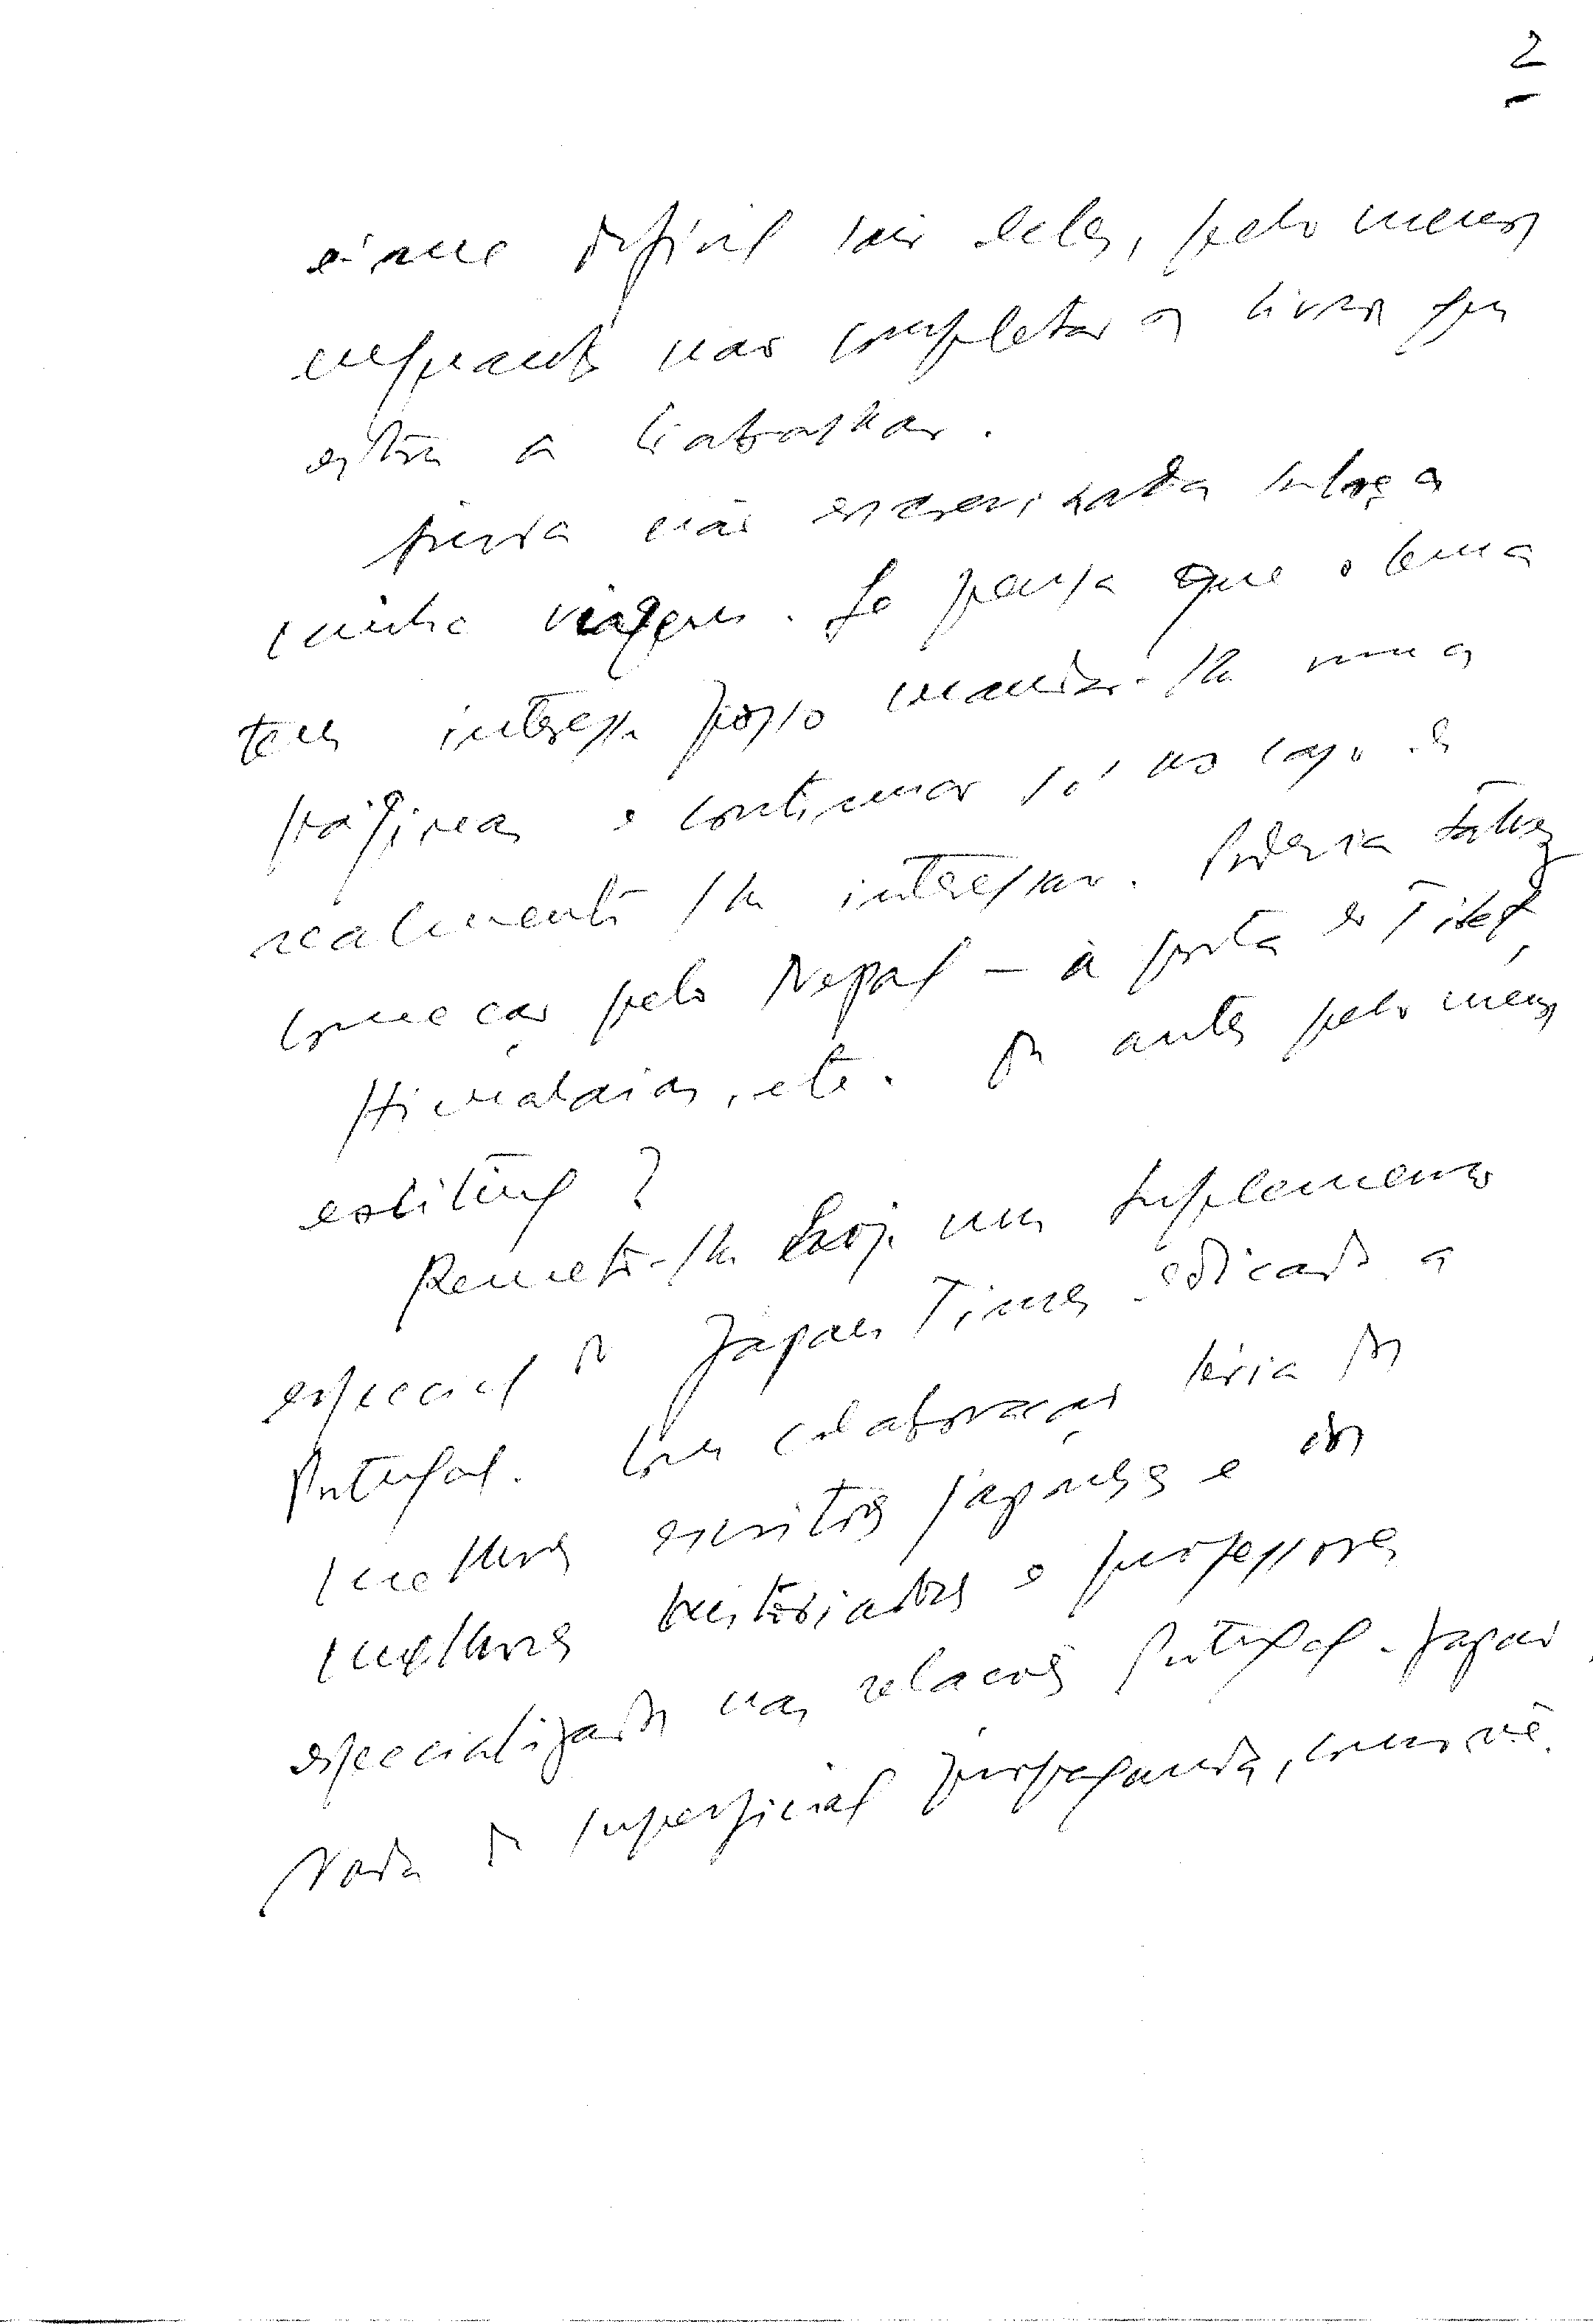 2
é-me difícil sair deles, pelo menos
enquanto não completar os livros que
estou a trabalhar.
Ainda não escrevi nada sobre a
minha viagem. Se pensa que o tema
tem interesse posso mandar-lhe umas
páginas e continuar só no caso de
realmente lhe interessar. Poderia talvez
começar pelo Nepal — a porta do Tibet,
Himalaias, etc. Ou antes pelo meu
Remeto-lhe hoje um suplemento
especial do Japan Times dedicado a
Portugal. Com colaboração séria dos
melhores escritores japoneses e dos
melhores historiadores e professores
especializados nas relações Portugal-Japão.
Nada de superficial propaganda, como vê.